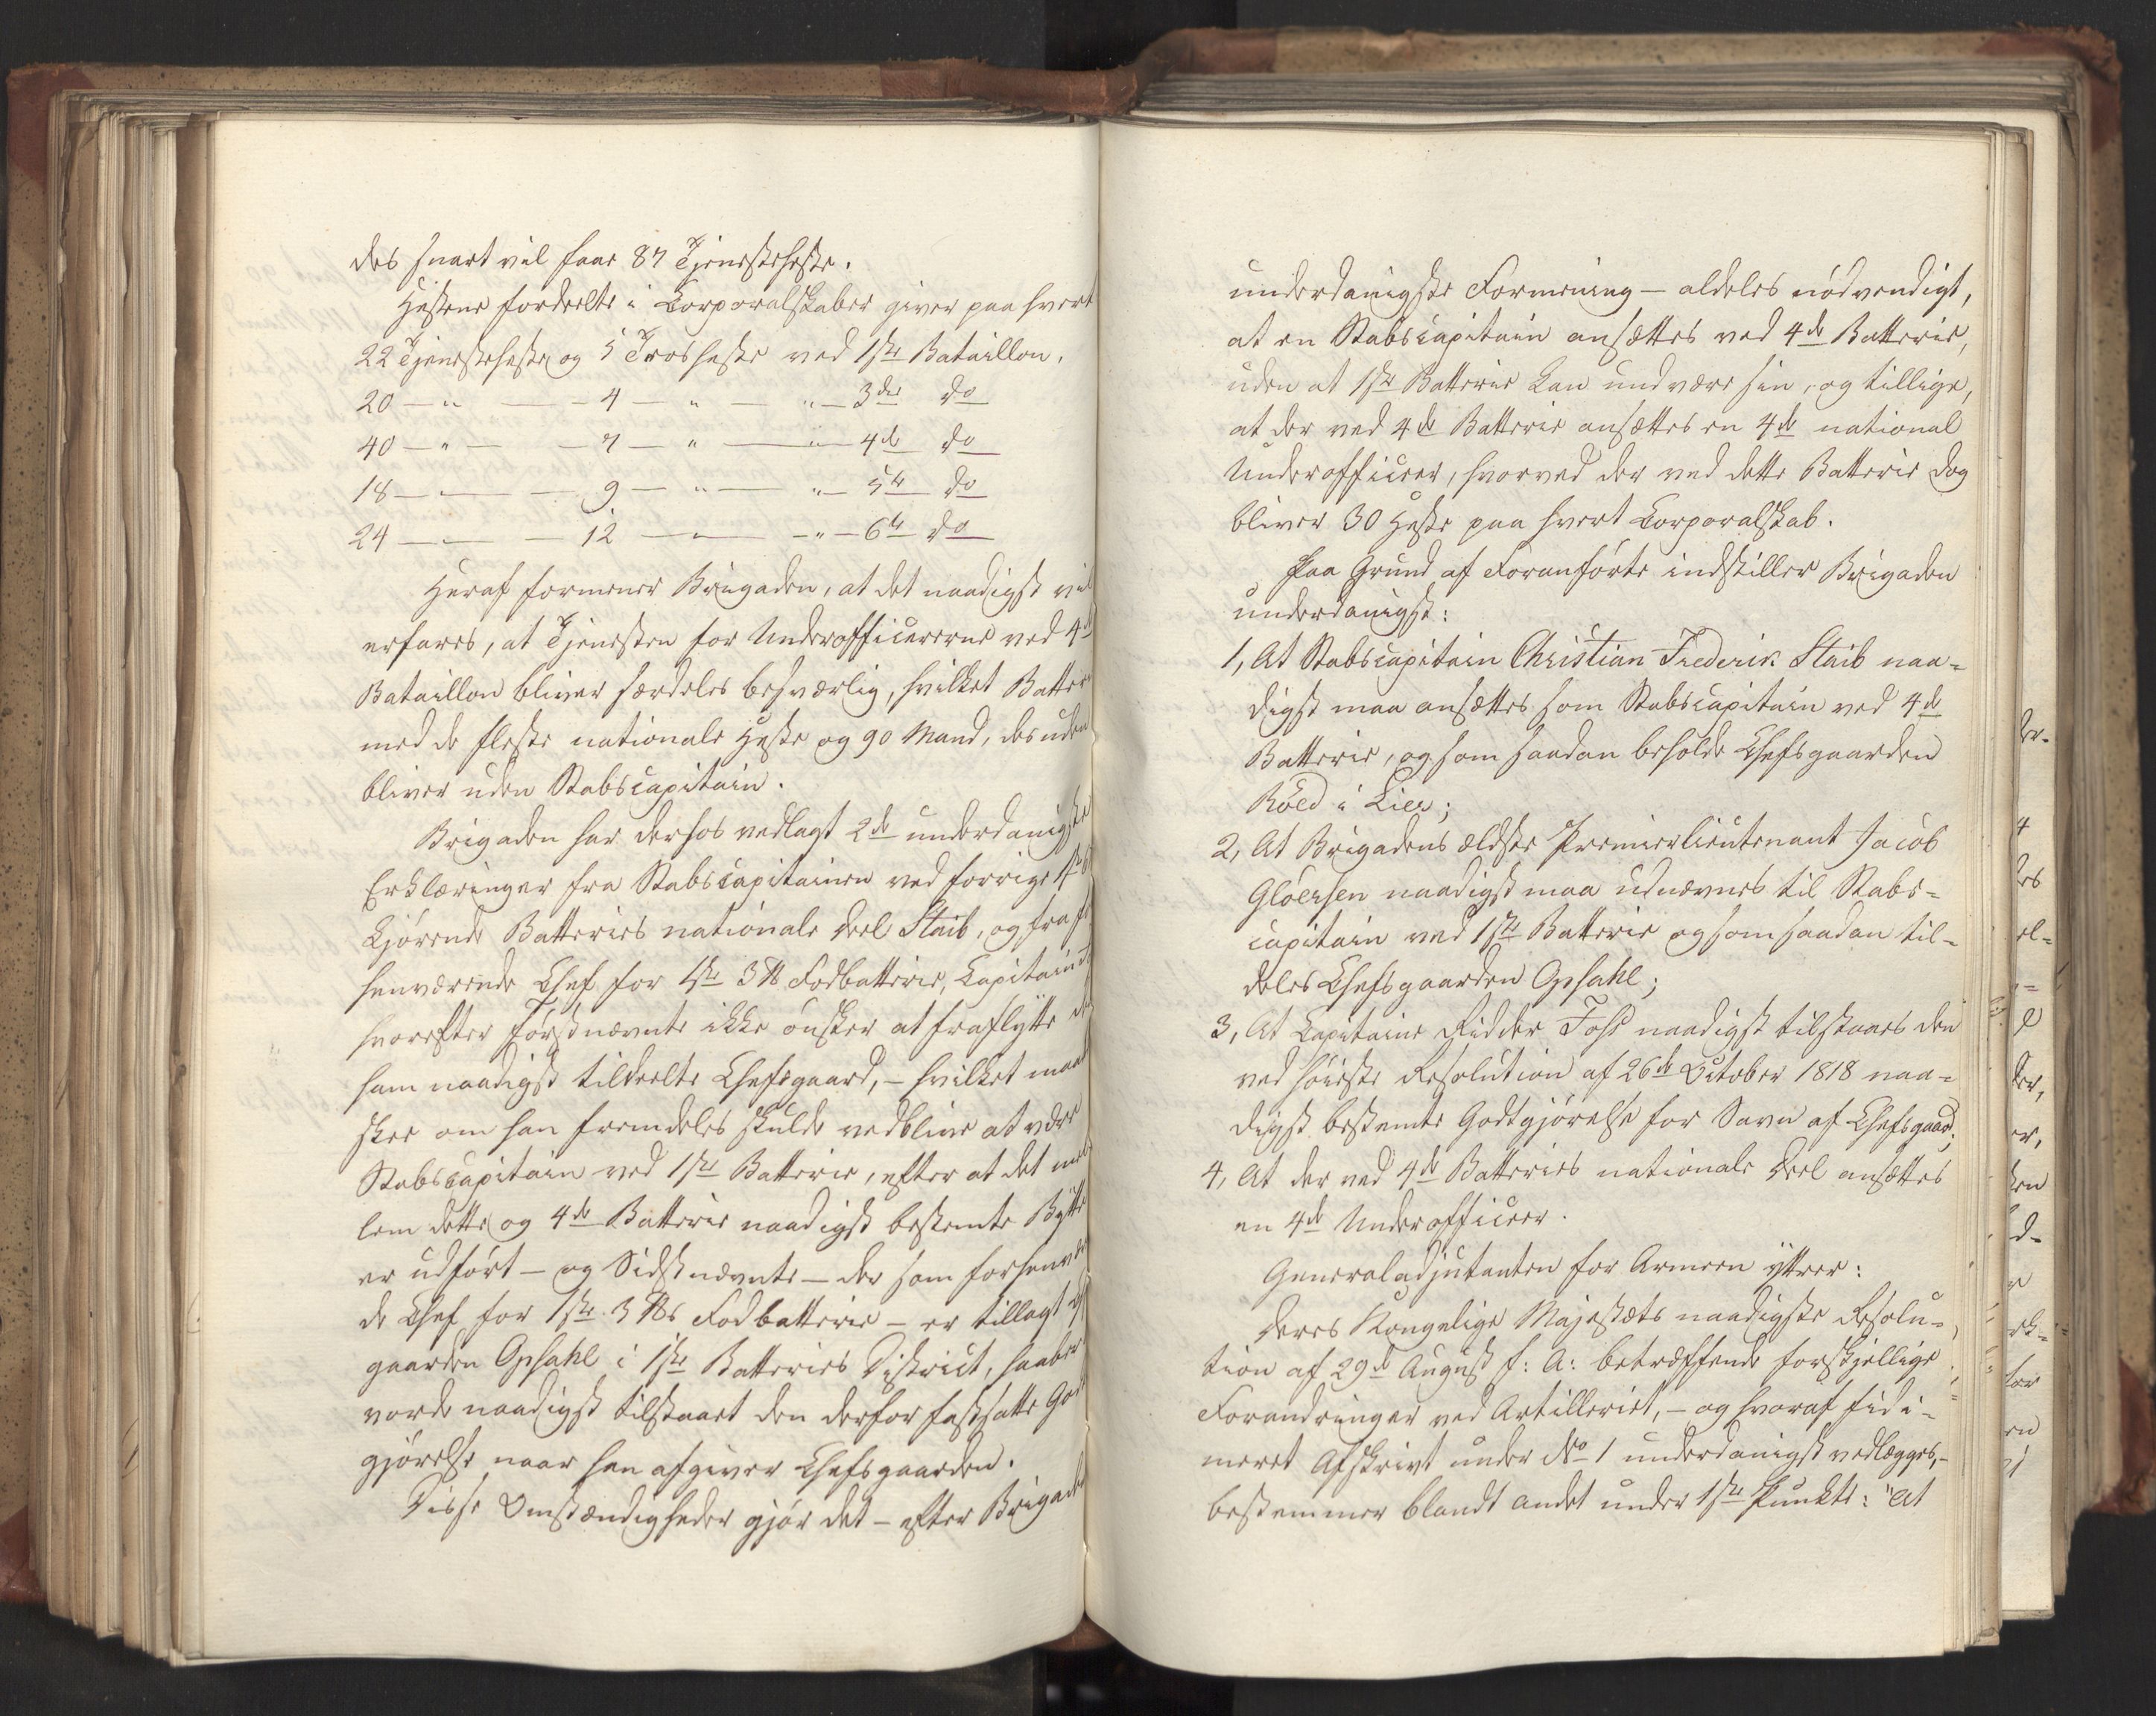 des snart vil faae 87 Tjenesteheste.
Hestene fordeelte i Corporalskaber giver paa hvert
22 Tjenesteheste og 5 Trosheste ved 1ste Bataillon.
20 — " — 4 — " — " — 3die do
40 — " — 7 — " — " — 4de do
18 — " — 9 — " — " — 5te do
24 — " — 12 — " — " — 6te do
Heraf formener Brigaden, at det naadigst vil
erfares, at Tjenesten for Underofficererne ved 4de
Bataillon bliver særdeles besværlig, hvilket Batterie
med de fleste nationale Heste og 90 Mand, desuden
bliver uden Stabscapitain.
Brigaden har derhos vedlagt 2de underdanigste
Erklæringer fra Stabscapitainen ved forrige 1ste
Kjørende Batteries nationale Deel Staib, og fra for
henværende Chef for 1ste 3 ℔ Fodbatterie, Capitain
hvorefter Førstnævnte ikke ønsker at fraflytte den
ham naadigst tildeelte Chefsgaard, — hvilket maat
skee om han fremdeles skulde vedblive at være
Stabscapitain ved 1ste Batterie, efter at det mel
lem dette og 4de Batterie naadigst bestemte Bytte
er udført — og Sidstnævnte — der som forhenværen
de Chef for 1ste 3 ℔s Fodbatterie — er tillagt Chefs
gaarden Opsahl i 1ste Batteries District, haaber
vorde naadigst tilstaaet den derfor fastsatte Godt
gjørelse naar han afgiver Chefsgaarden.
Disse Omstændigheder gjør det — efter Brigadens
underdanigste Formening — aldeles nødvendigt,
at en Stabscapitain ansættes ved 4de Batterie,
uden at 1ste Batterie kan undvære sin, og tillige,
at der ved 4de Batterie ansættes en 4de national
Underofficeer, hvorved der ved dette Batterie dog
bliver 30 Heste paa hvert Corporalskab.
Paa Grund af Foranførte indstiller Brigaden
underdanigst:
1, At Stabscapitain Christian Frederik Staib naa=
digst maa ansættes som Stabscapitain ved 4de
Batterie, og som saadan beholde Chefsgaarden
Røed i Lier;
2, At Brigadens ældste Premierlieutenant Jacob
Gløersen naadigst maa udnævnes til Stabs=
capitain ved 1ste Batterie og som saadan til=
deles Chefsgaarden Opsahl;
3, At Capitaine Ridder Fohs naadigst tilstaaes den
ved høieste Resolution af 26de October 1818 naa=
digst bestemte Godtgjørelse for Savn af Chefsgaard;
4, At der ved 4de Batteries nationale Deel ansættes
en 4de Underofficeer.
Generaladjutanten for Armeen yttrer:
Deres Kongelige Majestæts naadigste Resolu=
tion af 29de August f: A: betræffende forskjellige
Forandringer ved Artilleriet, — og hvoraf fidi=
meret Afskrivt under No 1 underdanigst vedlægges,—
bestemmer blandt andet under 1ste Punkt: "At